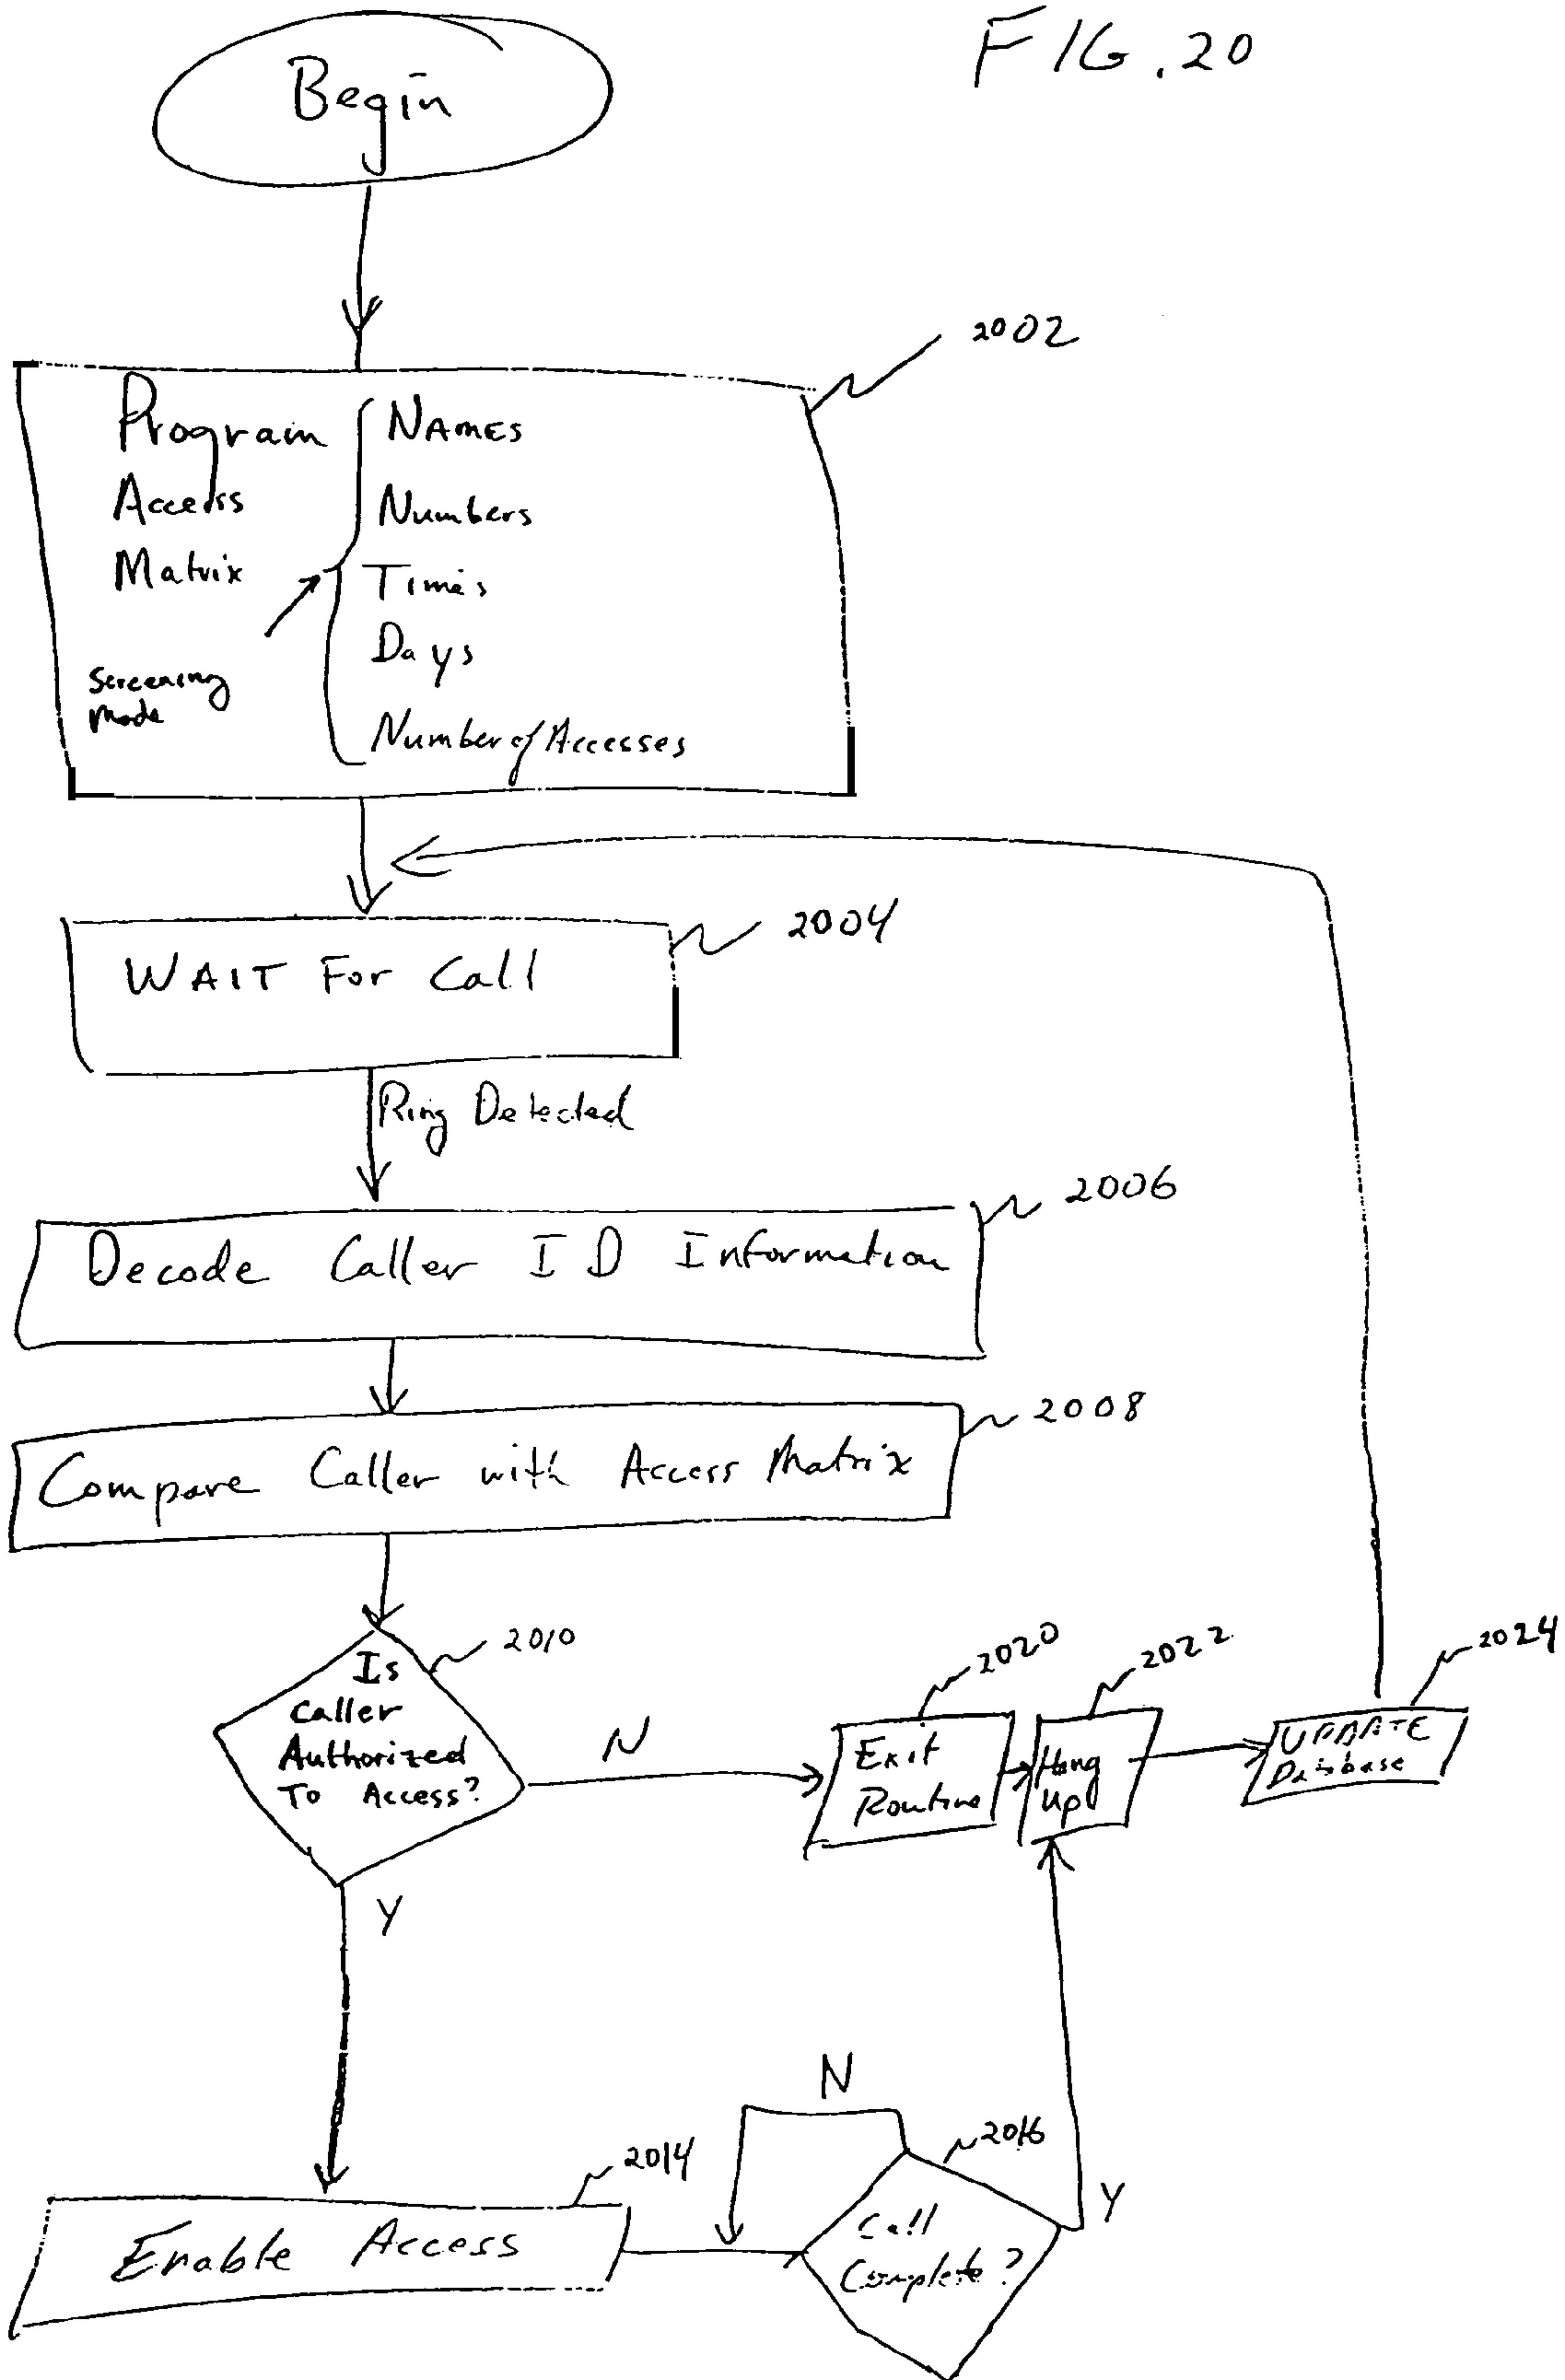 FIG. 20
Begin
2002
Program
Access
Matrix
screening
mode
NAMES
Numbers
Times
Days
Number of Accesses
2004
WAIT For Call
Ring Detected
2006
Decode Caller ID Information
2008
Compare Caller with Access Matrix
2010
Is
Caller
Authorized
To Access?
N
Y
2020
Exit
Routine
2022
Hang
Up
2024
UPDATE
Database
2014
Enable Access
N
2016
Call
Complete?
Y